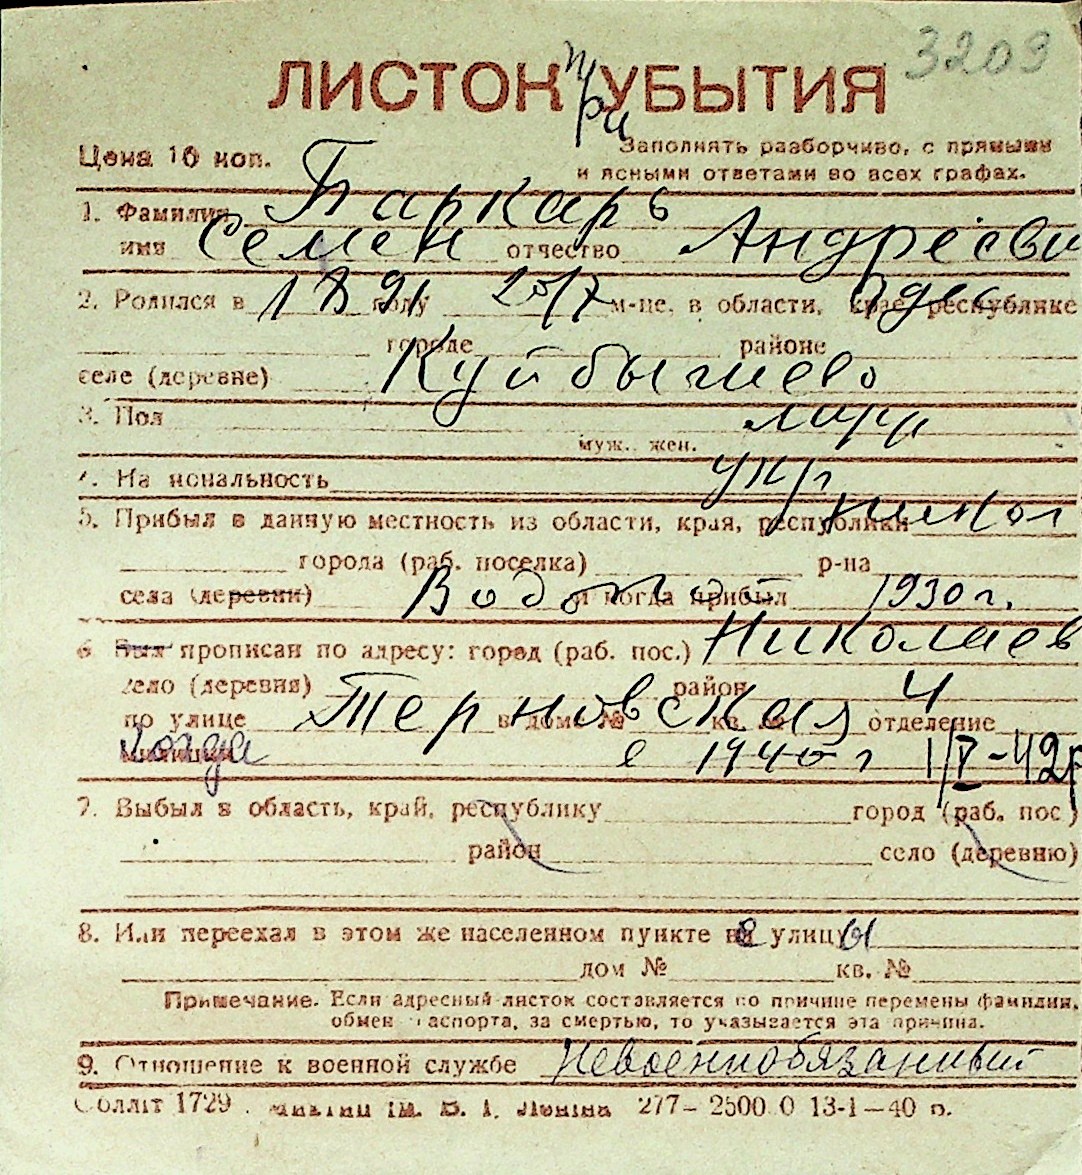 3209
ЛИСТОК при УБЫТИЯ
Цена 10 коп. Заполнять разборчиво, с прямыми
и ясными ответами во всех графах.
1. Фамилия Паркарь
имя Семен отчество Андреевич
2. Родился в 1891 году 20/7 м-це, в области, крае, республике Одес
городе районе
селе (деревне) Куйбышево
3. Пол муж
муж., жен.
4. Национальность укр
5. Прибыл в данную местность из области, края, республики Никол
города (раб. поселка) р-на
села (деревни) Водопой и когда прибыл 1930 г.
6 Был прописан по адресу: город (раб. пос.) Николаев
село (деревня) район 4
по улице Терновская в дом № кв. № отделение
милиции Когда с 1940 г 1/V-42г
7. Выбыл в область, край, республику город (раб. пос.)
район село (деревню)
8. Или переехал в этом же населенном пункте с улицы
дом № кв. №
Примечание. Если адресный листок составляется по причине перемены фамилии,
обмен паспорта, за смертью, то указывается эта причина.
9. Отношение к военной службе невоеннобязанный
Обліт 1729. ім. В. І. Леніна 277—2500.0 13-1—40 р.